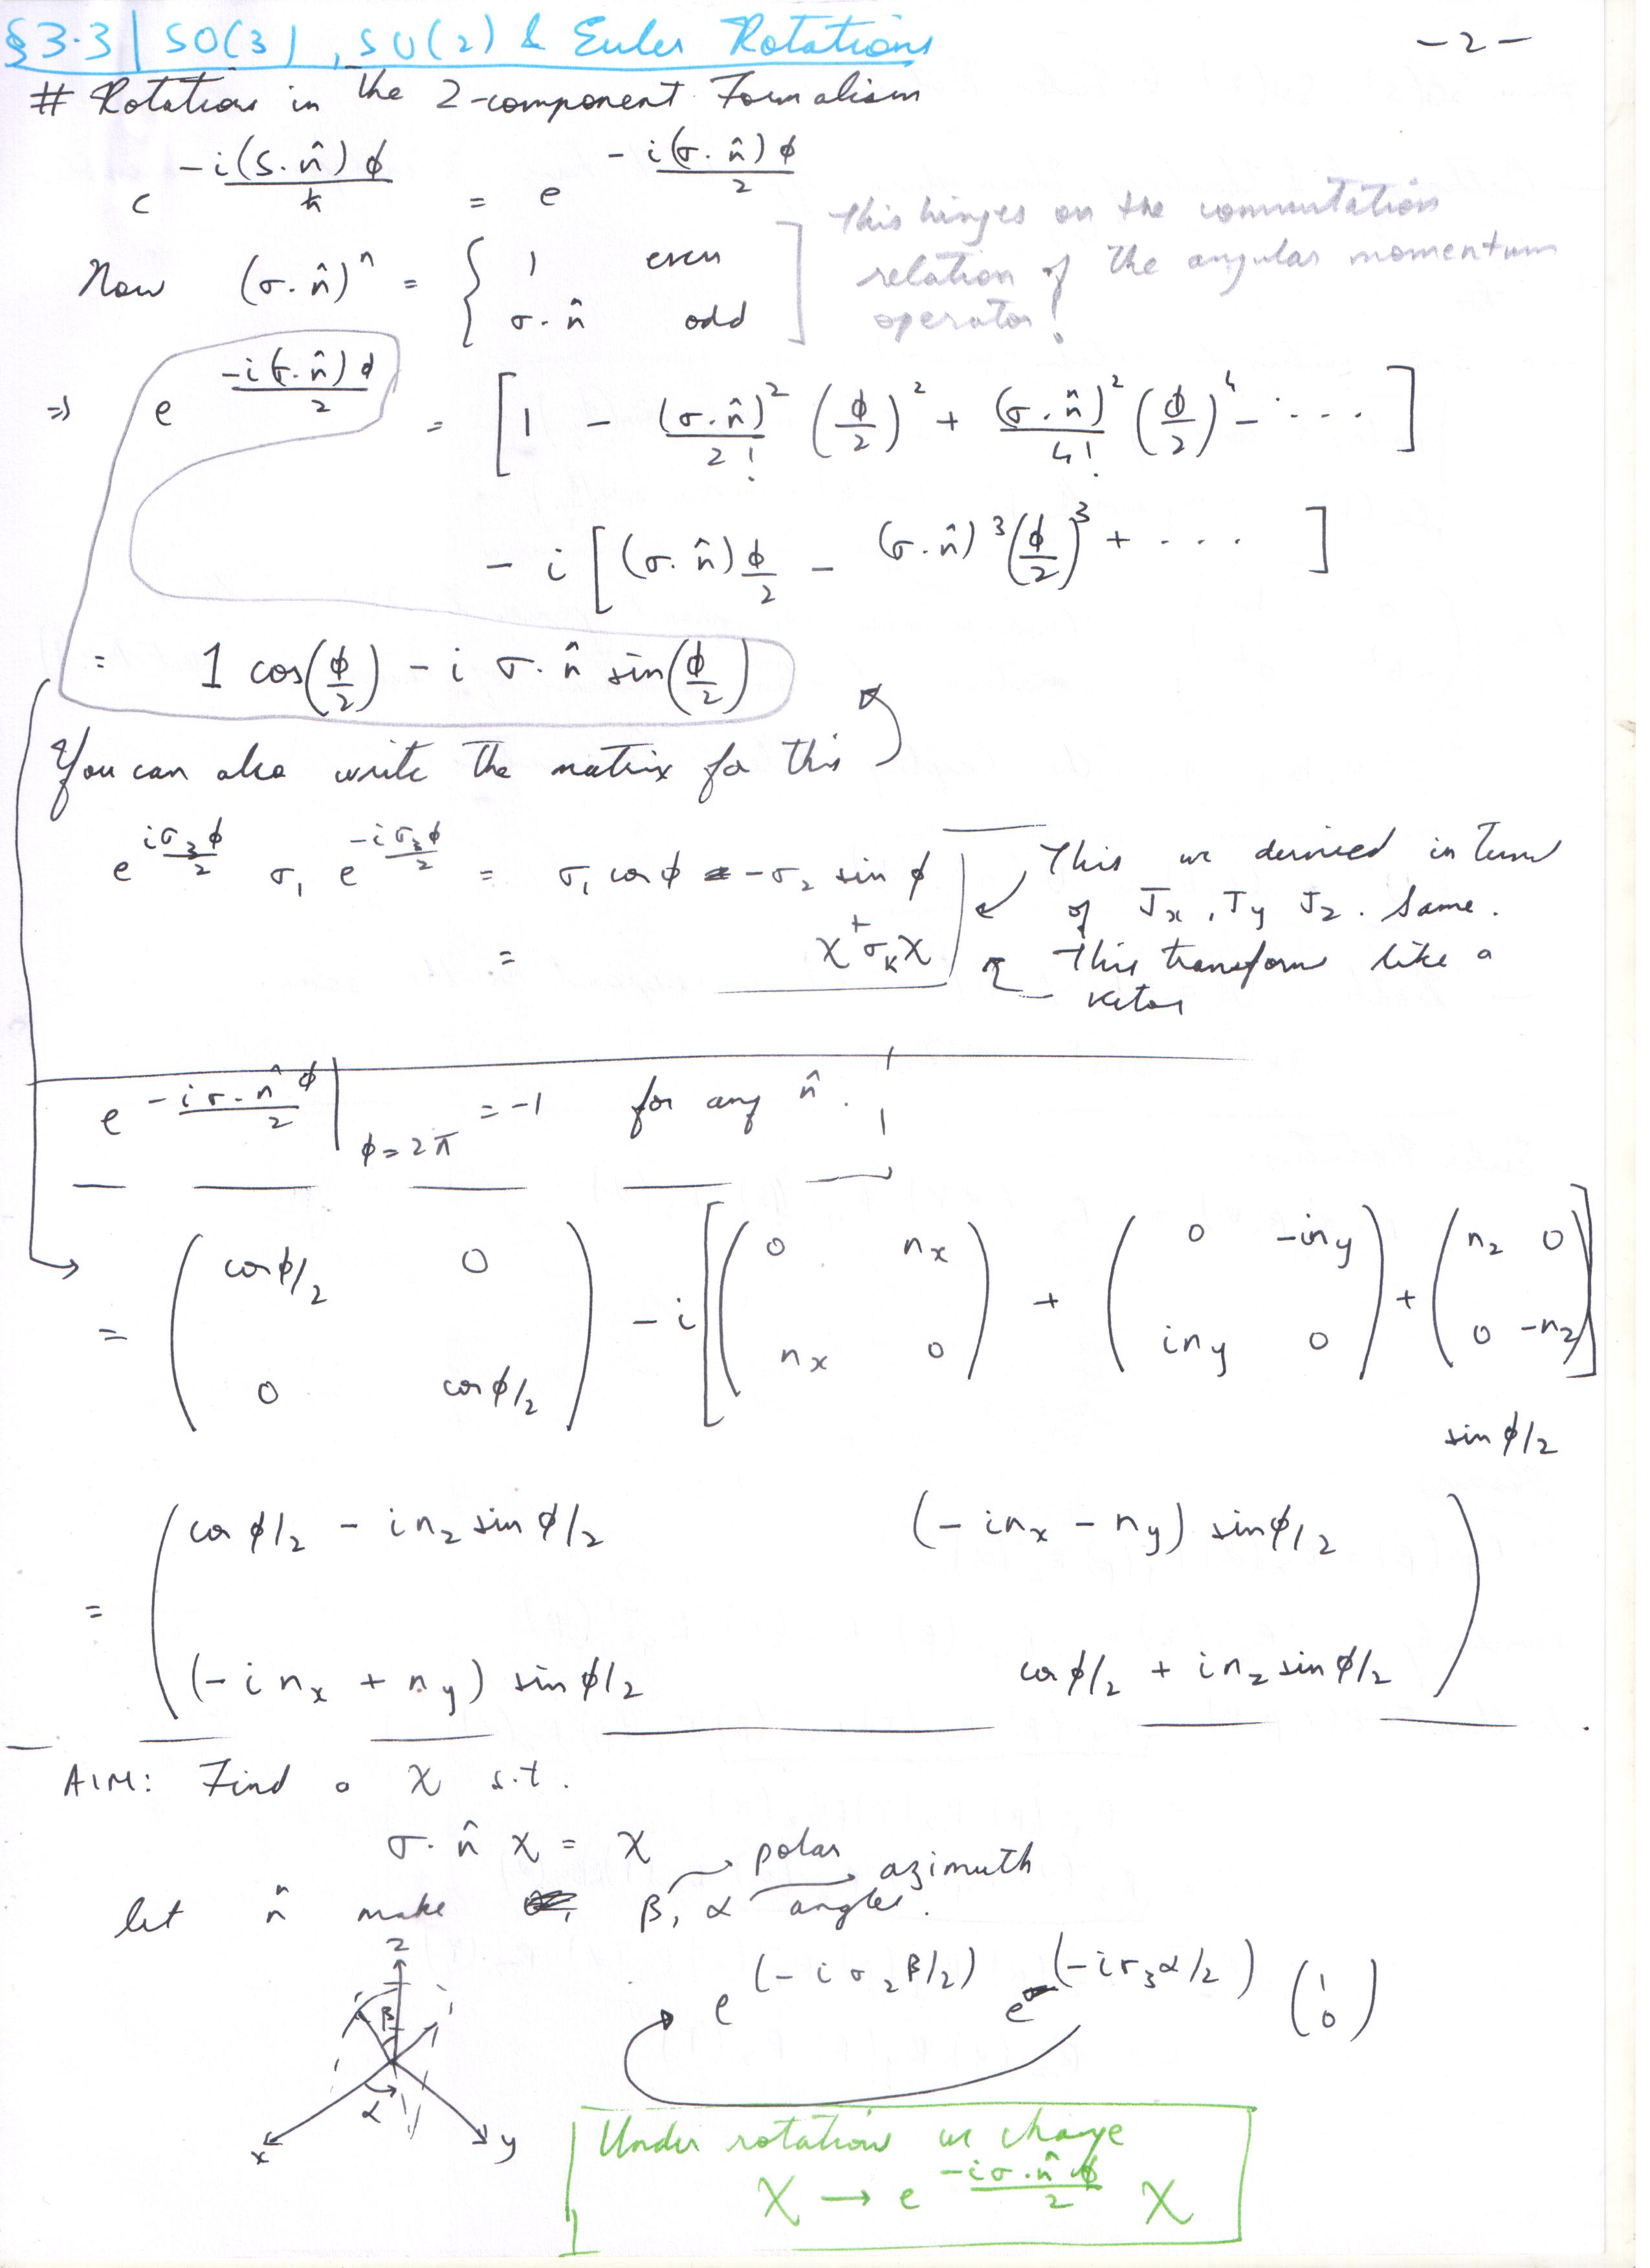 §3.3 | SO(3), SU(2) & Euler Rotations
-2-
# Rotations in the 2-component Formalism
e^{-i(S·n̂)φ/ħ} = e^{-i(σ·n̂)φ/2}
Now (σ·n̂)^n = { 1 even
σ·n̂ odd
This hinges on the commutation
relation of the angular momentum
operator!
⇒ e^{-i(σ·n̂)φ/2} = [1 - (σ·n̂)^2/2! (φ/2)^2 + (σ·n̂)^2/4! (φ/2)^4 - ....]
- i [(σ·n̂) φ/2 - (σ·n̂)^3 (φ/2)^3 + ....]
= 1 cos(φ/2) - i σ·n̂ sin(φ/2)
You can also write the matrix for this
e^{iσ_3φ/2} σ_1 e^{-iσ_3φ/2} = σ_1 cosφ - σ_2 sinφ
= χ^+ σ_k χ
This we derived in terms
of J_x, J_y J_z. Same.
This transforms like a
vector
e^{-iσ·n̂φ/2} |_{φ=2π} = -1 for any n̂.
= ( cosφ/2 0 ) - i [ ( 0 n_x ) + ( 0 -in_y ) + ( n_z 0 ) ]
( 0 cosφ/2 ) ( n_x 0 ) ( in_y 0 ) ( 0 -n_z )
sinφ/2
= ( cosφ/2 - in_z sinφ/2 (-in_x - n_y) sinφ/2 )
( (-in_x + n_y) sinφ/2 cosφ/2 + in_z sinφ/2 )
AIM: Find a χ s.t.
σ·n̂ χ = χ
polar
azimuth
let n̂ make β, α angles.
z
β
α
x
y
e^{(-iσ_2β/2)} e^{(-iσ_3α/2)} (1 0)
Under rotations we change
χ → e^{-iσ·n̂φ/2} χ